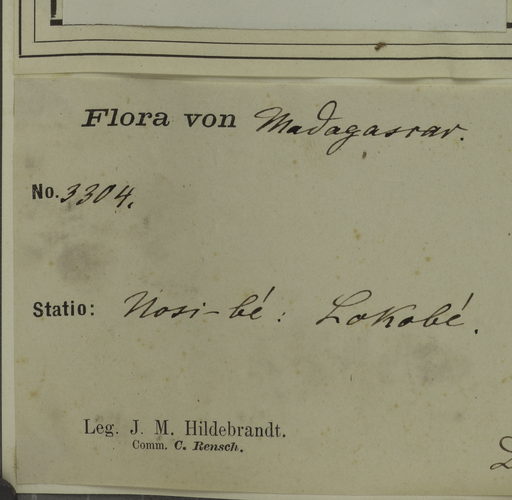 Flora von Madagascar.
No. 3304.
Statio: Nosi-bé: Lokobé.
Leg. J. M. Hildebrandt.
Comm. C. Rensch.